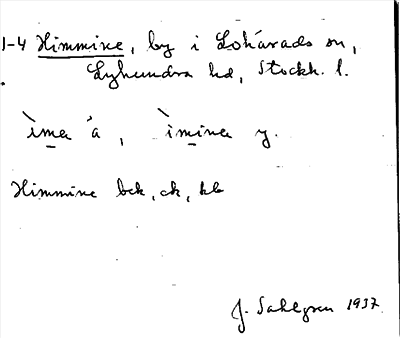 1-4 Himmine, by i Lohärads sn,
Lyhundra hd, Stockh. l.
ìma ä, ìmina y.
Himmine bek, ek, kb
J. Sahlgren 1937